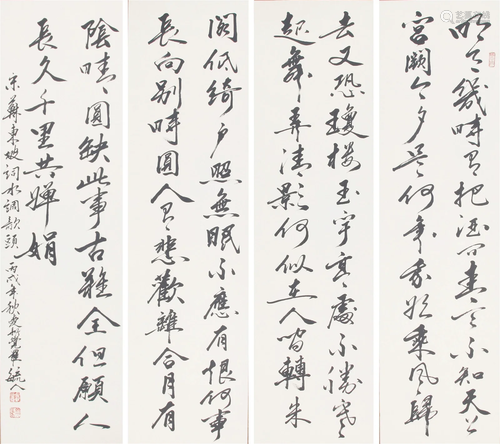 明月幾時有把酒问青天不知天上
宫闕今夕是何年我欲乘风歸
去又恐瓊楼玉宇高處不勝寒
起舞弄清影何似在人间轉朱
阁低绮户照無眠不應有恨何事
長向别時圓人有悲歡離合月有
陰晴圓缺此事古難全但願人
長久千里共嬋娟
宋蘇東坡詞水調歌頭 丙戌年秋 毓人